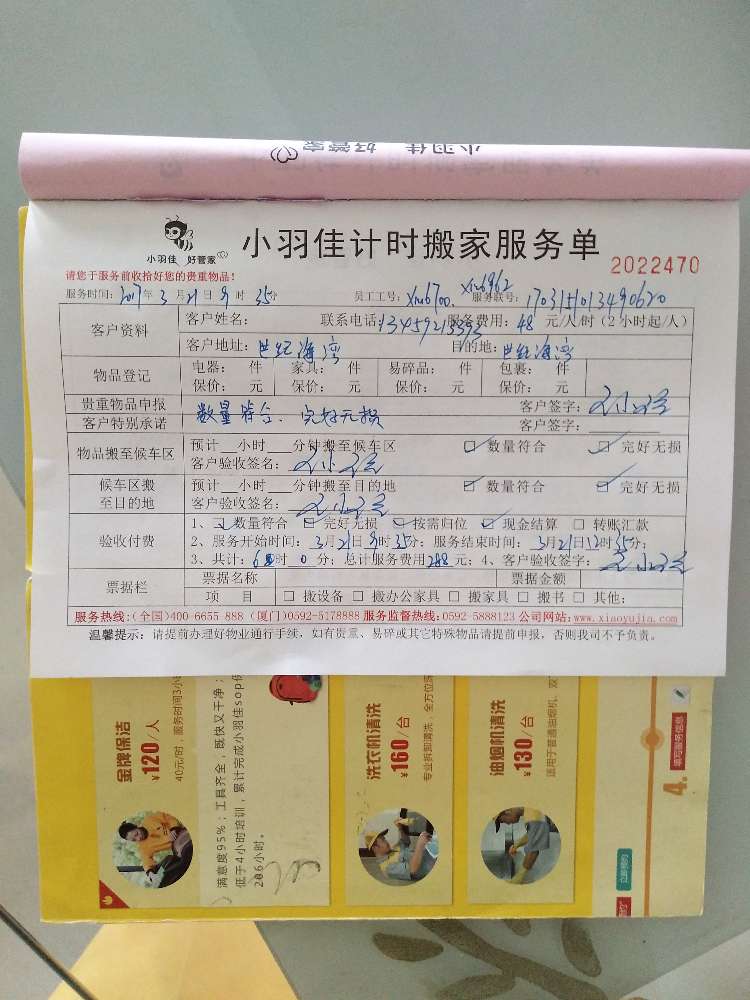 小羽佳 好管家
小羽佳 好管家
小羽佳计时搬家服务单
2022470
请您于服务前收拾好您的贵重物品！
服务时间：2017年3月21日9时35分 员工工号：xm6700. xm6962 服务联号：170315013490620
客户资料
客户姓名： 联系电话：13459213393 服务费用：48元/人/时（2小时起/人）
客户地址：世纪海湾 目的地：世纪海湾
物品登记
电器： 件 家具： 件 易碎品： 件 包裹： 件
保价： 元 保价： 元 保价： 元 保价： 元
贵重物品申报 客户签字：
客户特别承诺 数量皆合、完好无损 客户签字：
物品搬至候车区
预计 小时 分钟搬至候车区 ☑ 数量符合 ☑ 完好无损
客户验收签名：
候车区搬至目的地
预计 小时 分钟搬至目的地 ☑ 数量符合 ☑ 完好无损
客户验收签名：
验收付费
1、☑数量符合 ☑完好无损 ☑按需归位 ☑现金结算 □转账汇款
2、服务开始时间：3月21日9时35分；服务结束时间：3月21日12时35分；
3、共计：6时0分；总计服务费用288元；4、客户验收签字：
票据栏
票据名称 票据金额
项 目 □搬设备 □搬办公家具 □搬家具 □搬书 □其他：
服务热线：(全国)400-6655 888 (厦门)0592-5178888 服务监督热线：0592-5888123 公司网站：www.xiaoyujia.com
温馨提示：请提前办理好物业通行手续，如有贵重、易碎或其它特殊物品请提前申报，否则我司不予负责。
金牌保洁
¥120/人
40元/时，服务时间3小
满意度95%；工具齐全，既快又干净；
低于4小时培训，累计完成小羽佳sop
206小时。
洗衣机清洗
¥160/台
专业拆卸清洗，全方位
油烟机清洗
¥130/台
适用于普通油烟机，双
4.
填写服务信息
立即预约